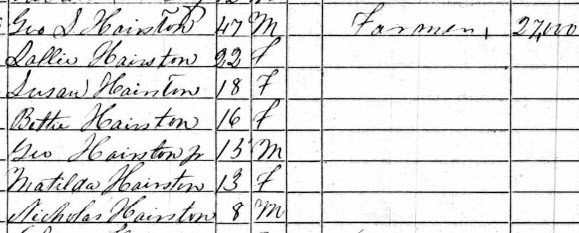 Geo S Hairston 47 M Farmer 27,000
Sallie Hairston 22 F
Susan Hairston 18 F
Bettie Hairston 16 F
Geo Hairston Jr 15 M
Matilda Hairston 13 F
Nicholas Hairston 8 M